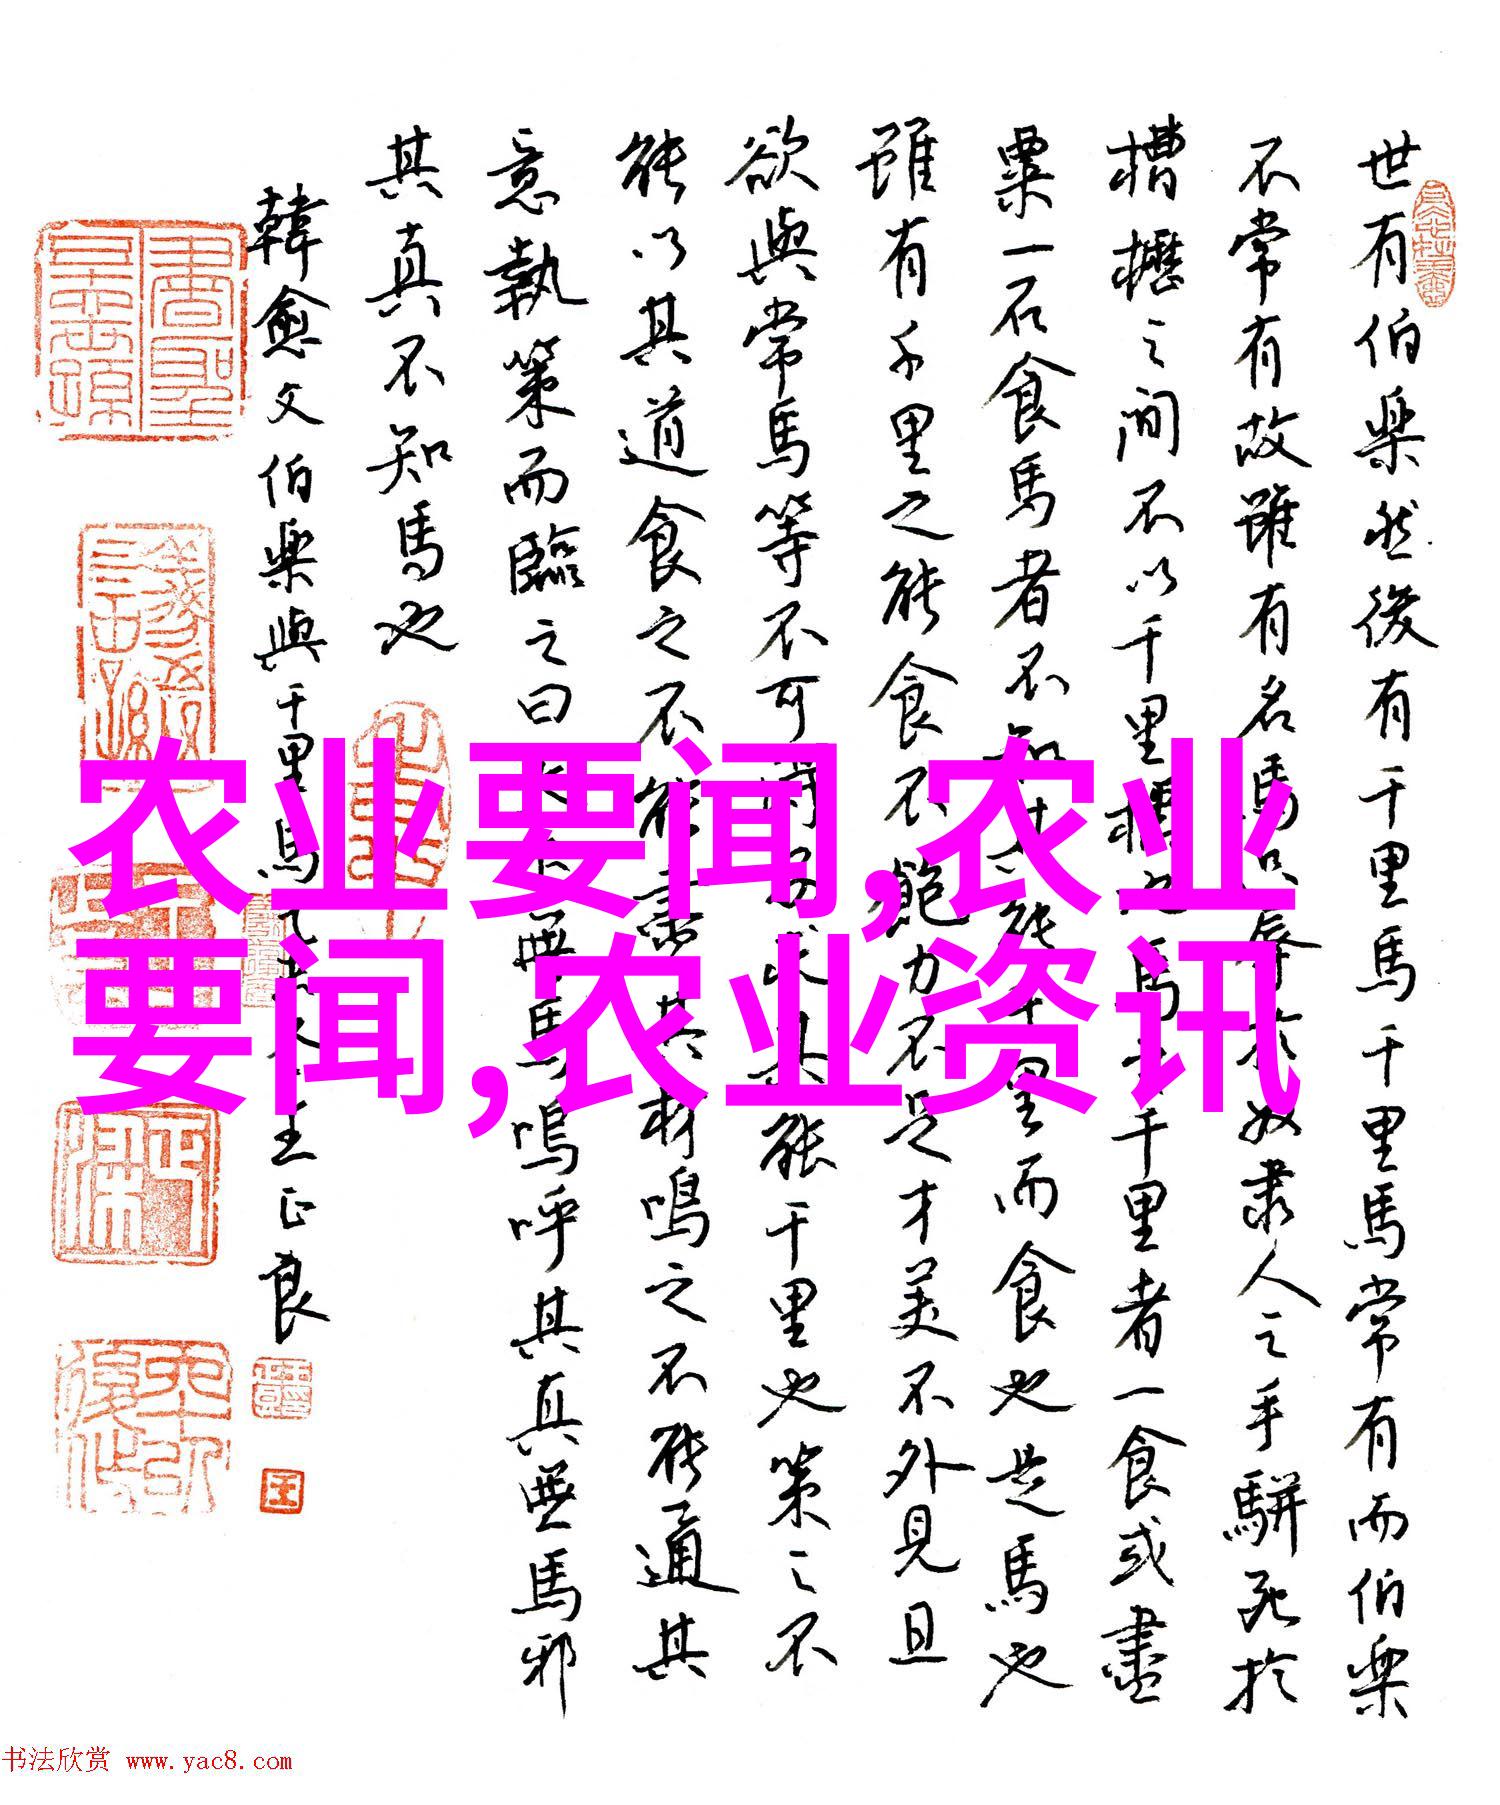 世有伯樂然後有千里馬千里馬常有而伯樂
不常有故雖有名馬辱於奴隸人之手駢死於
槽櫪之間不以千里稱也馬之千里者一食或盡
粟一石食馬者不知其能千里而食也是馬也
雖有千里之能食不飽力不足才美不外見且
欲與常馬等不可得求能千里也策之不
能以其道食之不能盡其材鳴之不能通其
意執策而臨之曰天下無馬嗚呼其真無馬邪
其真不知馬也
韓愈文伯樂與千里馬王正良
农业要闻,农业
要闻,农业资讯
书法欣赏 www.yac8.com